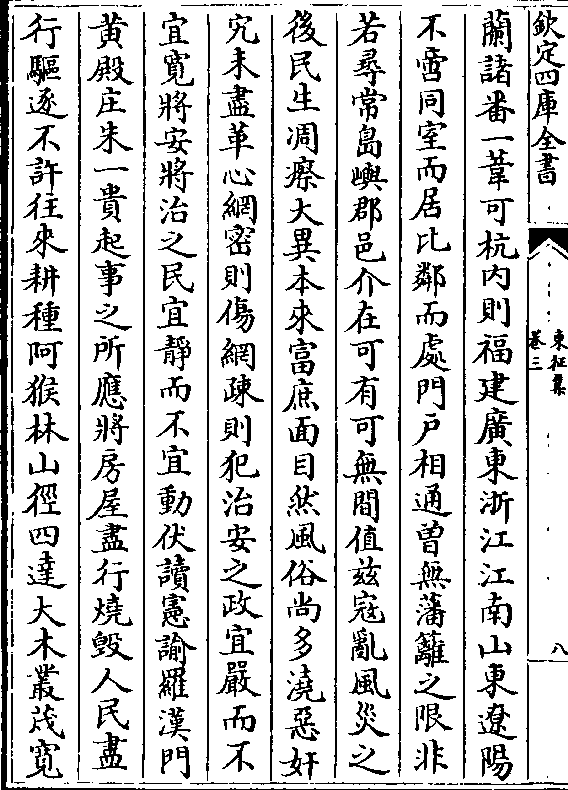 欽定四庫全書
東征集
卷三
八
蘭諸番一葦可杭内則福建廣東浙江江南山東遼陽
不啻同室而居比鄰而處門戶相通曾無藩籬之限非
若尋常島嶼郡邑介在可有可無間值兹宼亂風災之
後民生凋瘵大異本來富庶面目然風俗尚多澆惡奸
宄未盡革心網密則傷網疎則犯治安之政宜嚴而不
宜寛將安將治之民宜靜而不宜動伏讀憲諭羅漢門
黄殿庄朱一貴起事之所應將房屋盡行燒毁人民盡
行驅逐不許往來耕種阿猴林山徑四達大木叢茂寛